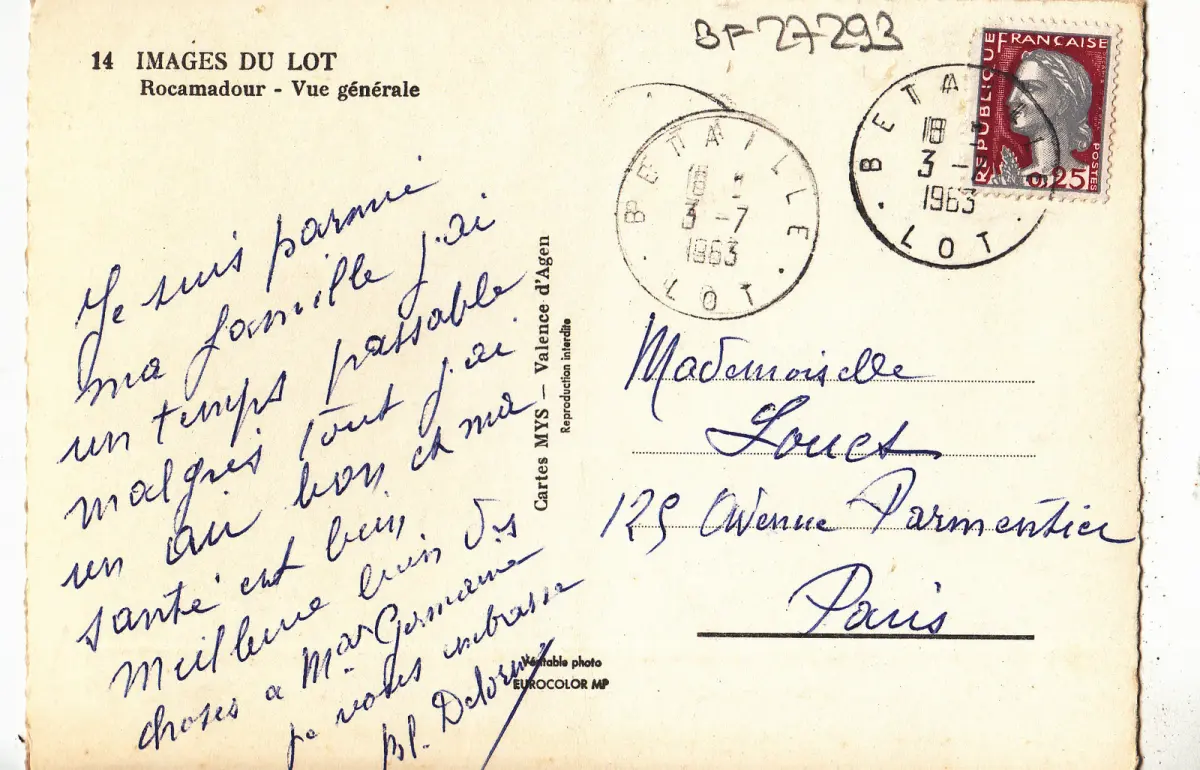 14 IMAGES DU LOT
Rocamadour - Vue générale
BF 27293
RÉPUBLIQUE FRANÇAISE
0,25
POSTES
BETAILLE
18
3 - 7
1963
LOT
BETAI
18
3 -
1963
LOT
Je suis parmie
ma famille j'ai
un temps passable
malgres tout j'ai
un air bon et ma
santé est bien
Meilleure bien des
choses a Mme Germaine
je vous embrasse
Bl.
Cartes MYS - Valence d'Agen
Reproduction interdite
Véritable photo
EUROCOLOR MP
Mademoiselle
Louet
125 Avenue Parmentier
Paris